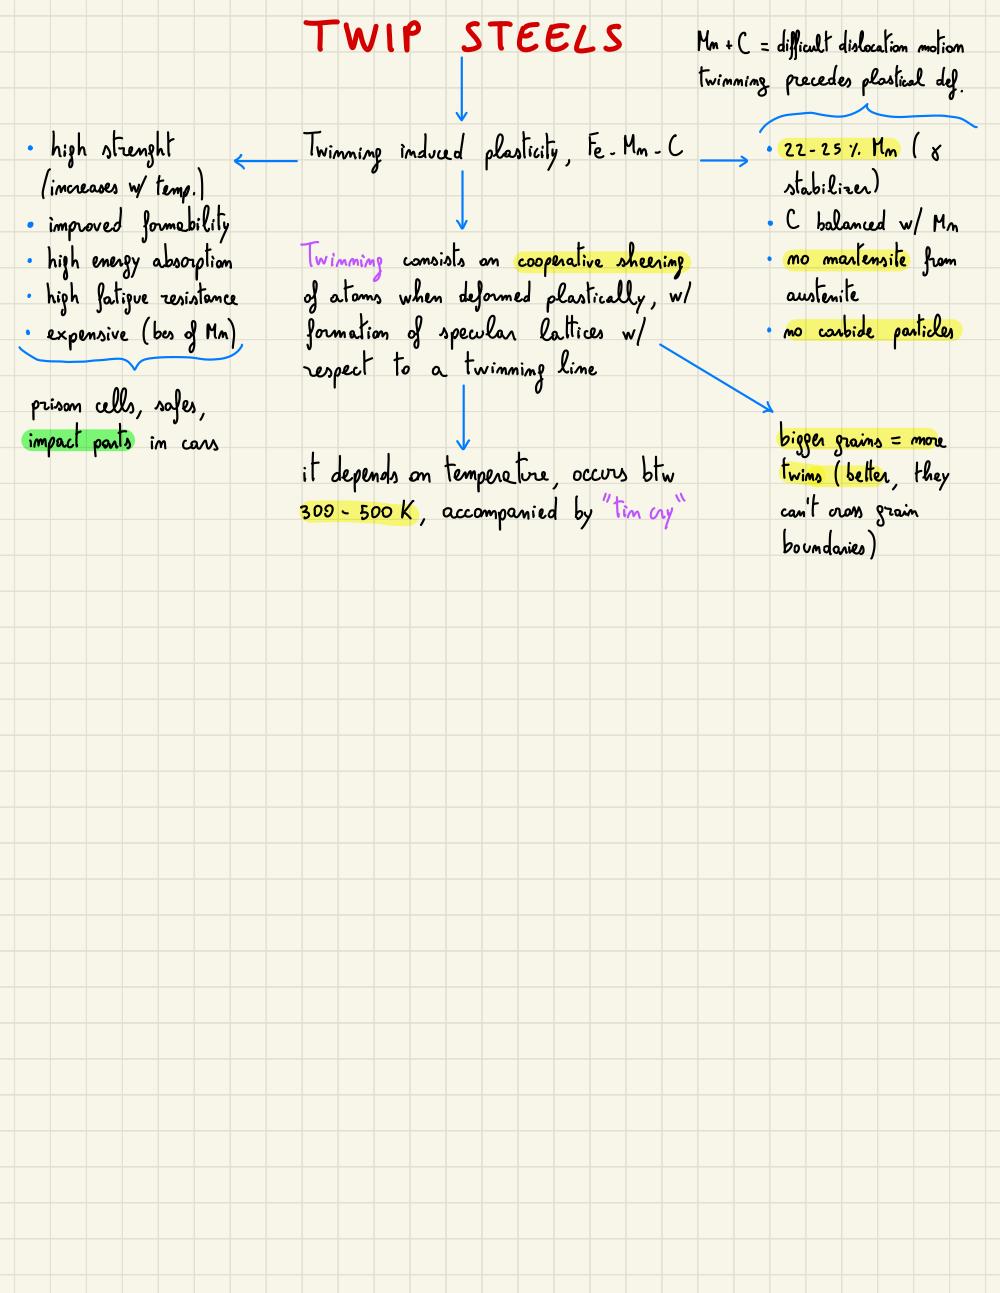 TWIP STEELS
Mn + C = difficult dislocation motion
twinning precedes plastical def.
• high strenght
(increases w/ temp.)
• improved formability
• high energy absorption
• high fatigue resistance
• expensive (bcs of Mn)
prison cells, safes,
impact parts in cars
Twinning induced plasticity, Fe - Mn - C
Twinning consists on cooperative sheering
of atoms when deformed plastically, w/
formation of specular lattices w/
respect to a twinning line
it depends on temperature, occurs btw
300 - 500 K, accompanied by "tin cry"
• 22-25% Mn (γ
stabilizer)
• C balanced w/ Mn
• no martensite from
austenite
• no carbide particles
bigger grains = more
twins (better, they
can't cross grain
boundaries)